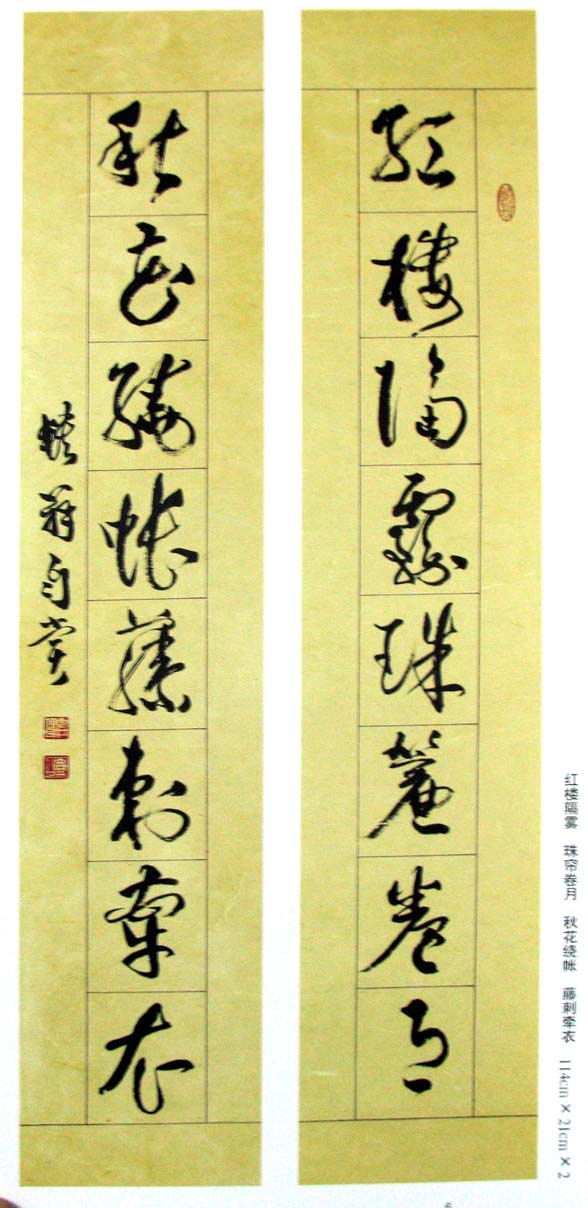 红楼隔雾珠簾卷月
秋花繞帐藤刺牵衣
自赏
红楼隔雾 珠帘卷月 秋花绕帐 藤刺牵衣 114cm×21cm×2